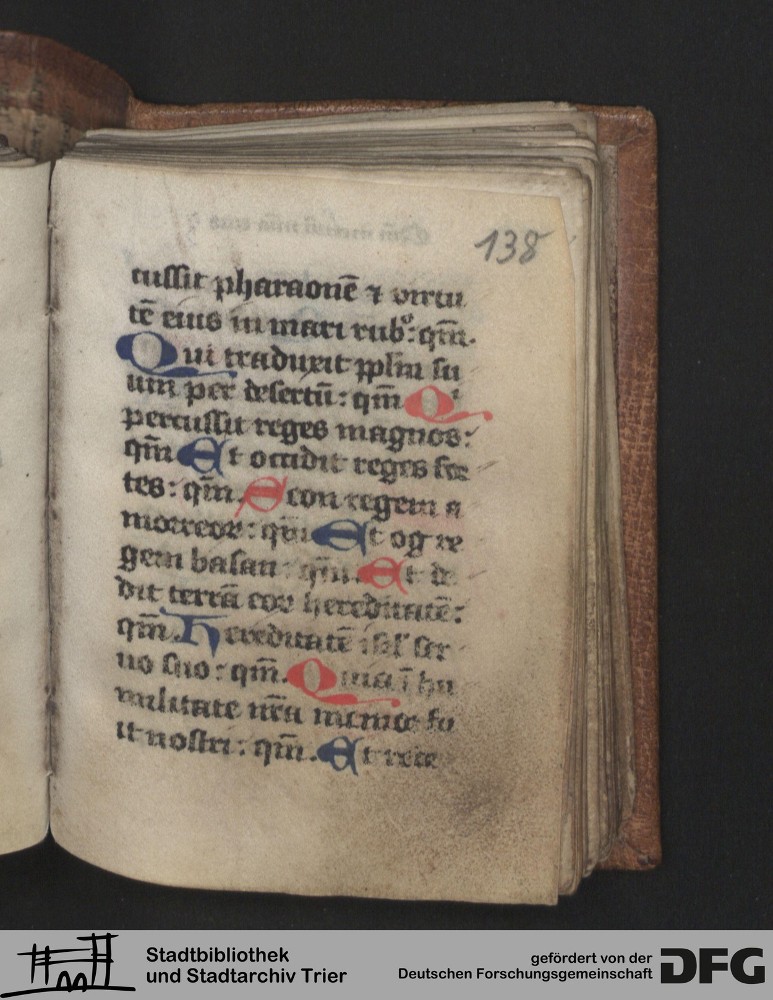 138
cussit pharaonē ⁊ virtu
tē eius in mari rubͦ: qm̄.
Qui traduxit pplm̄ su
um per desertū: qm̄ Qͥ
percussit reges magnos:
qm̄ Et occidit reges for
tes: qm̄. Seon regem a
morreoꝝ: qm̄ Et og re
gem basan: qm̄. Et de
dit terrā eoꝝ hereditatē:
qm̄. Hereditatē isrl̓ ser
uo suo: qm̄. Quia ī hu
militate nr̄a memor fu
it nostri: qm̄. Et rede
Stadtbibliothek
und Stadtarchiv Trier
gefördert von der
Deutschen Forschungsgemeinschaft DFG